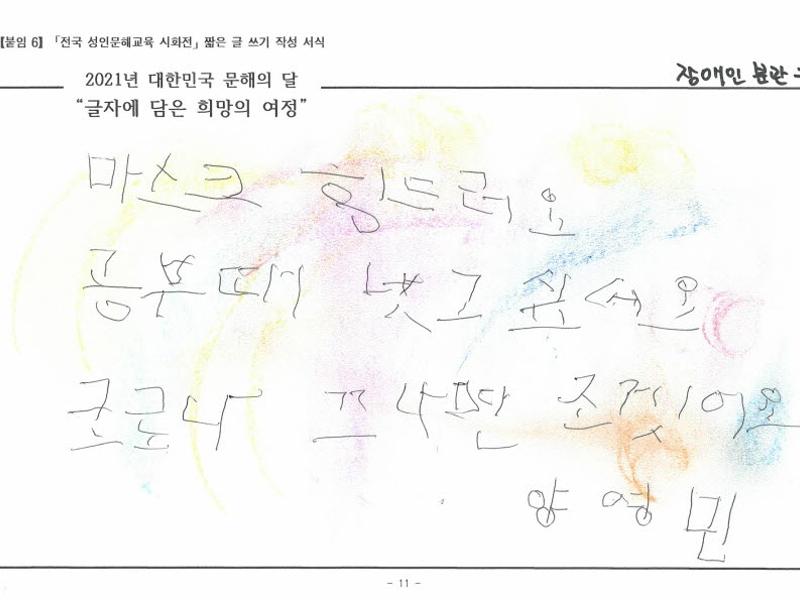 【붙임 6】 「전국 성인문해교육 시화전」 짧은 글 쓰기 작성 서식
2021년 대한민국 문해의 달
“글자에 담은 희망의 여정”
장애인 분관
마스크 힝드러요
공부때 벗고 싶서요
코로나 끄나면 조겟어요
양영민
- 11 -